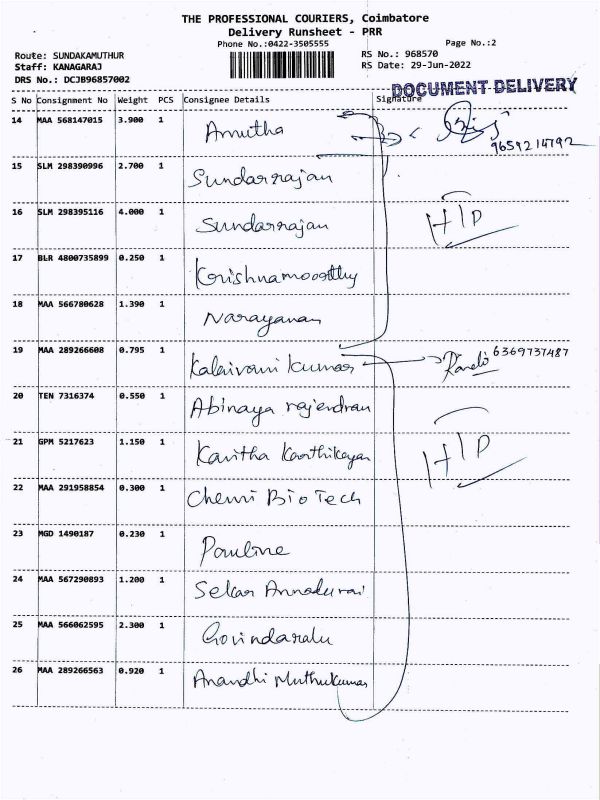 THE PROFESSIONAL COURIERS, Coimbatore
Delivery Runsheet - PRR
Phone No.:0422-3505555 Page No.:2
Route: SUNDAKAMUTHUR RS No.: 968570
Staff: KANAGARAJ RS Date: 29-Jun-2022
DRS No.: DCJB96857002
DOCUMENT DELIVERY
S No Consignment No Weight PCS Consignee Details Signature
14 MAA 568147015 3.900 1 Amutha
9659214792
15 SLM 298390996 2.700 1 Sundarrajan
16 SLM 298395116 4.000 1 Sundarrajan H/P
17 BLR 4800735899 0.250 1 Krishnamoorthy
18 MAA 566780628 1.390 1 Narayanan
19 MAA 289266608 0.795 1 Kalaivani Kumar 6369737487
20 TEN 7316374 0.550 1 Abinaya rajendran
21 GPM 5217623 1.150 1 Kavitha Karthikayan H/P
22 MAA 291958854 0.300 1 Chemi Bio Tech
23 MGD 1490187 0.230 1 Pauline
24 MAA 567290893 1.200 1 Sekar Annadurai
25 MAA 566062595 2.300 1 Govindaralu
26 MAA 289266563 0.920 1 Anandhi Muthukumar